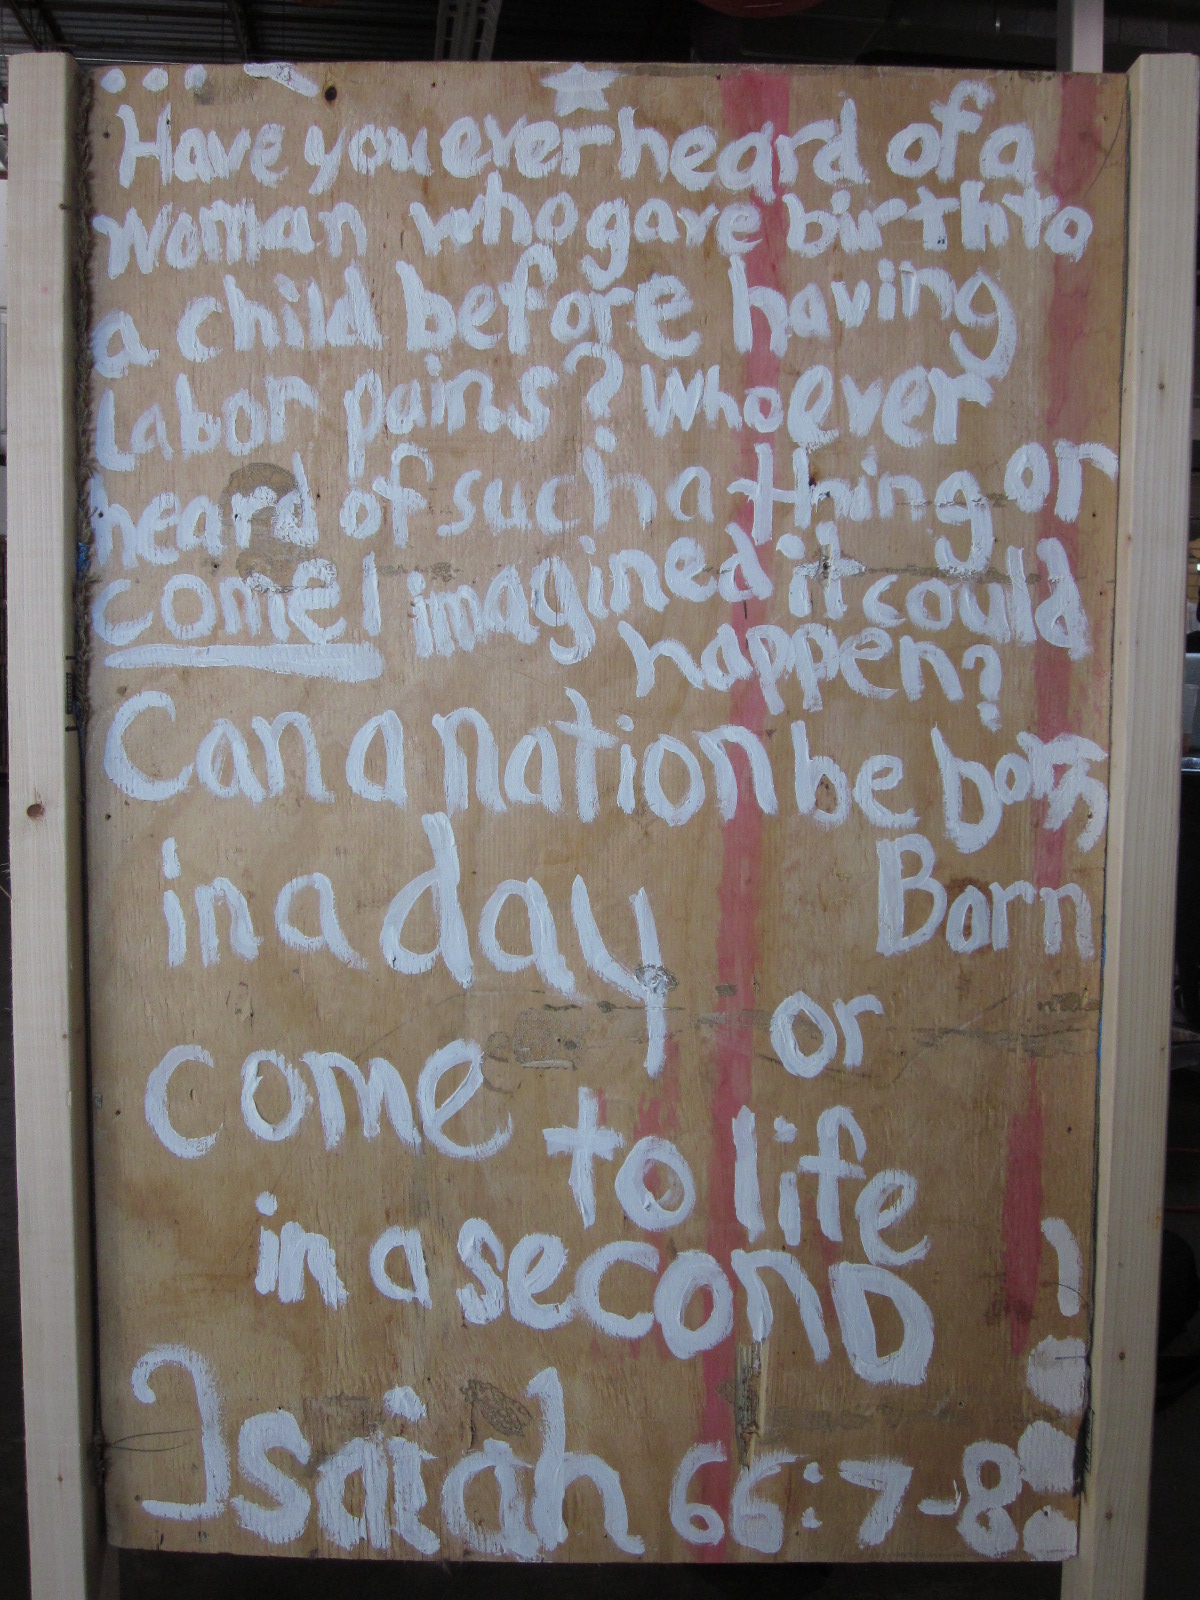 Have you ever heard of a
woman who gave birth to
a child before having
Labor pains? Whoever
heard of such a thing or
come | imagined it could
happen?
Can a nation be born
in a day Born
come or
to life
in a seconD
Isaiah 66:7-8